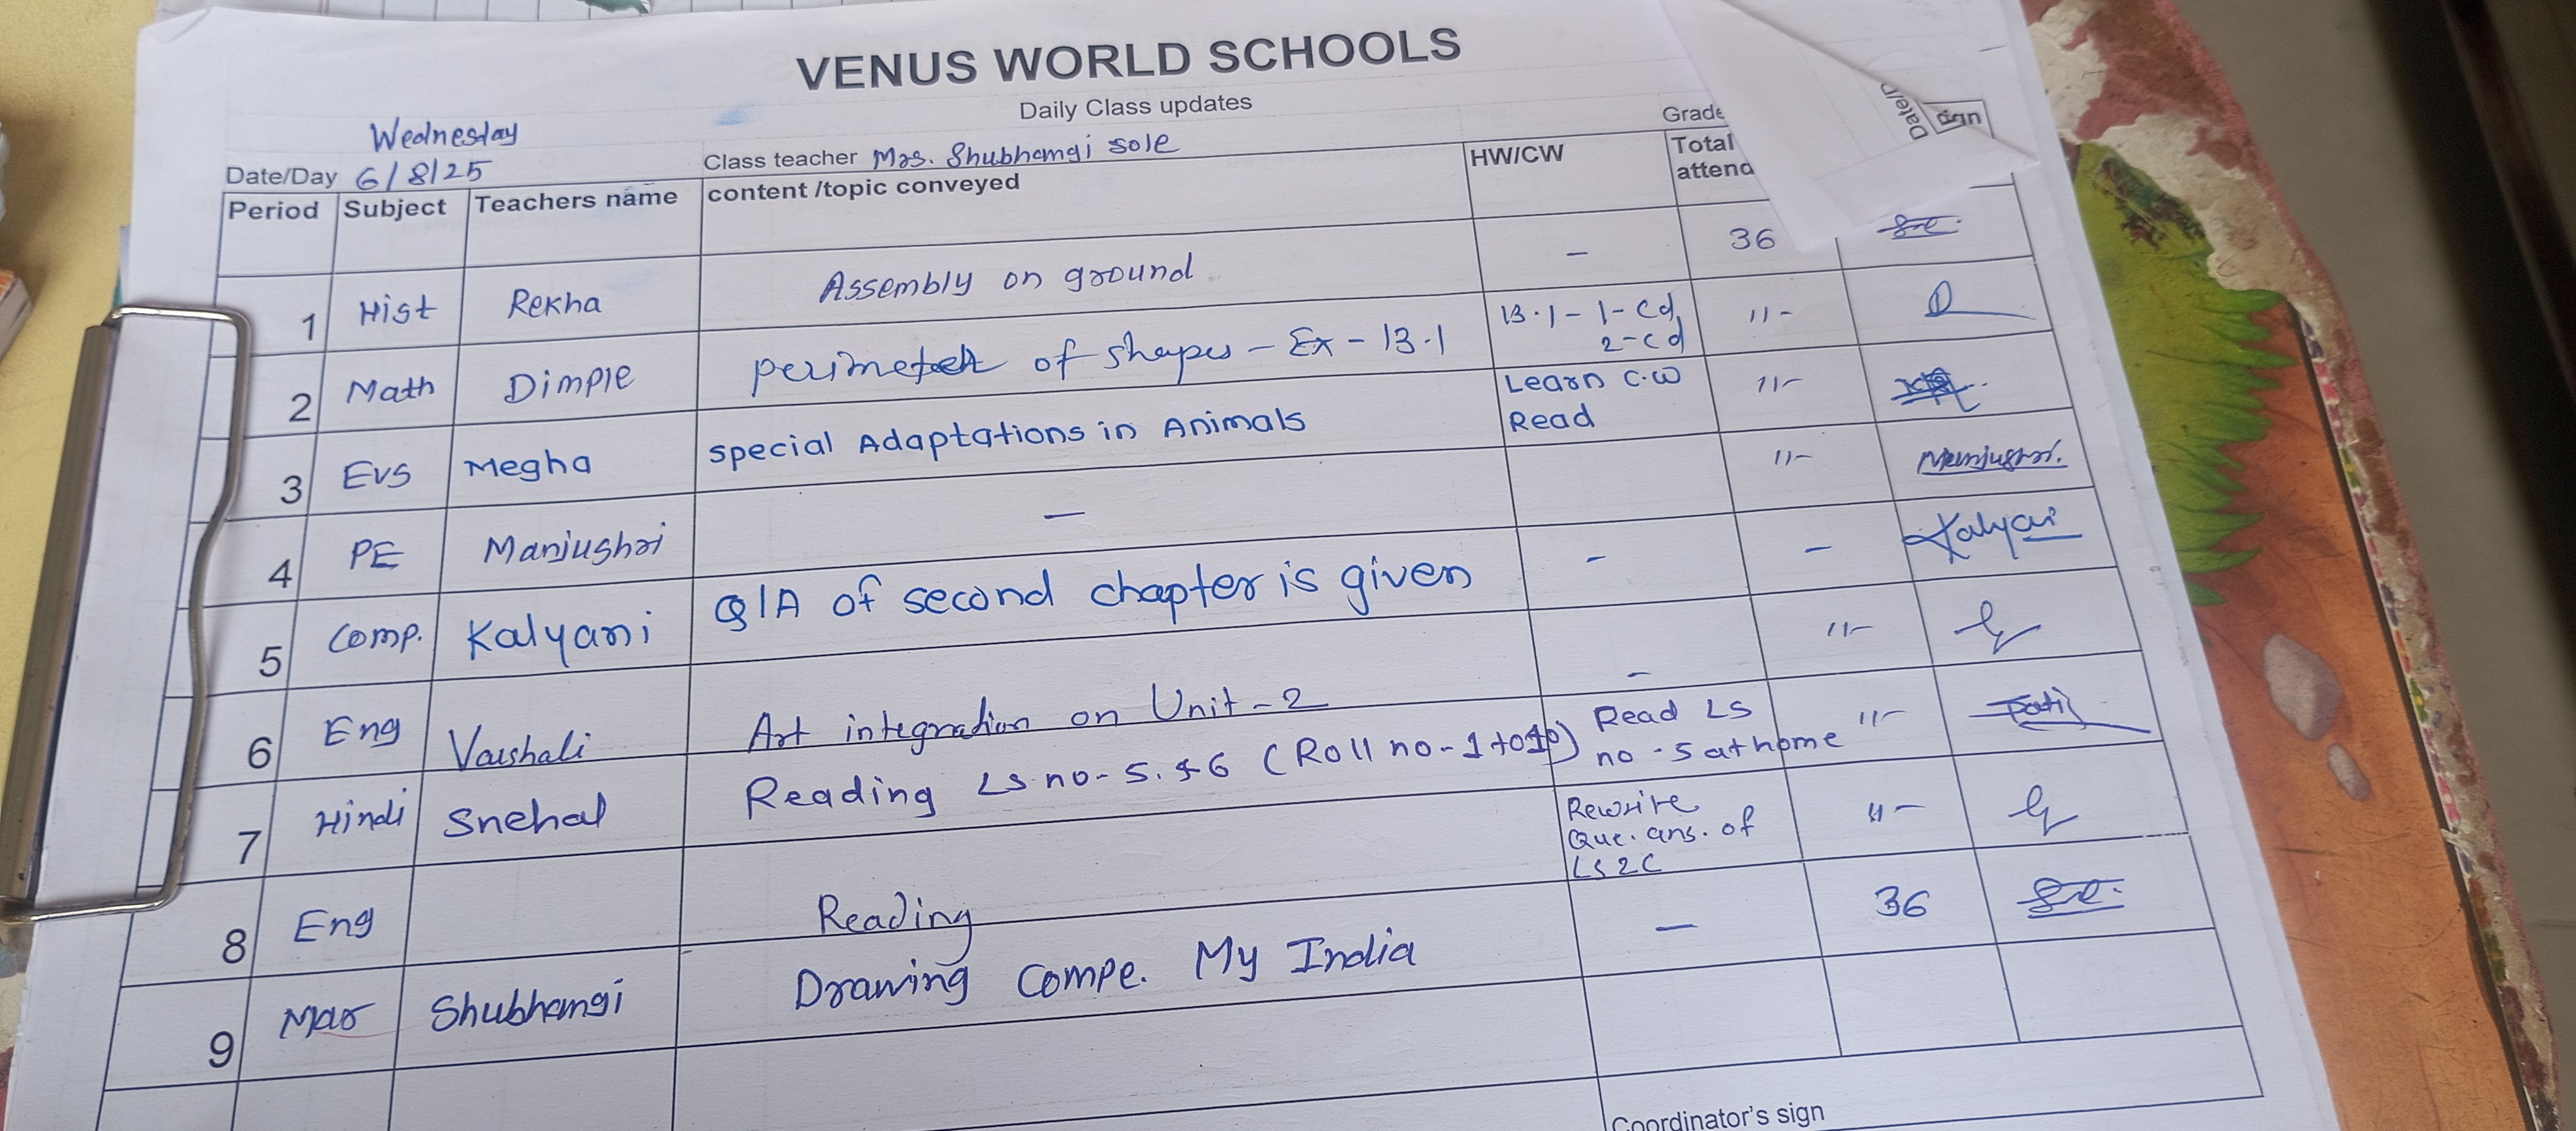 VENUS WORLD SCHOOLS
Daily Class updates
Wednesday
Date/Day 6/8/25 Class teacher Mrs. Shubhamgi Sole Grade
Period Subject Teachers name content /topic conveyed HW/CW Total attend sign
1 Hist Rekha Assembly on ground - 36
2 Math Dimple perimeter of shapes - Ex - 13.1 13.1 - 1 - cd, 2 - cd 11-
3 EVS Megha special Adaptations in Animals Learn C.W Read 11-
4 PE Manjushri - 11- Manjushri.
5 Comp. Kalyani Q/A of second chapter is given - - Kalyani
6 Eng Vaishali Art integration on Unit - 2 - 11-
7 Hindi Snehal Reading LS.no - 5. & 6 (Roll no - 1 to 10) Read LS no - 5 at home 11- Patil
8 Eng Reading Rewrite Que. ans. of LS2C 11-
9 Mar Shubhamgi Drawing Compe. My India - 36
Coordinator's sign